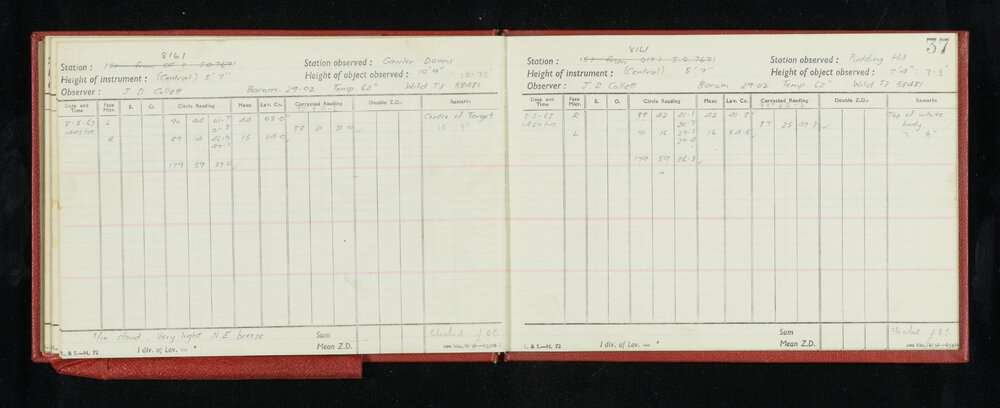 8161
Station : 101 from off 1 S.O.7691 Station observed : Gawler Downs
Height of instrument : (Central) 5' 7" Height of object observed : 10' 9" = 10.75
Observer : J. D. Collett Barom. 29.02 Temp 62° Wild T3 58481
Date and Time Face Micr. E. O. Circle Reading Mean Lev. Co. Corrected Reading Double Z.D.: Remarks
8-5-63 L 90 44 01.7 44 03.0 Centre of Target
1445 hrs 01.3 88 31 31.0 10' 9"
R 89 14 46.9 15 34.0
47.1
179 59 37.0
9/10 cloud. Very light N.E. breeze Sum Checked J.D.C.
Mean Z.D.
L. & S.—N. 72 1 div. of Lev. = "
37
8161
Station : Station observed : Pudding Hill
Height of instrument : (Central) 5' 7" Height of object observed : 7' 4" = 7.3
Observer : J. D. Collett Barom 29.02 Temp 62° Wild T3 58481
Date and Time Face Micr. E. O. Circle Reading Mean Lev. Co. Corrected Reading Double Z.D.: Remarks
8-5-63 R 88 42 21.1 42 41.8 Top of white
1450 hrs 20.7 87 25 47.3 body
L 91 16 27.1 16 54.5 7' 4"
27.4
179 59 36.3
Sum Checked J.D.C.
Mean Z.D.
L. & S.—N. 72 1 div. of Lev. = "